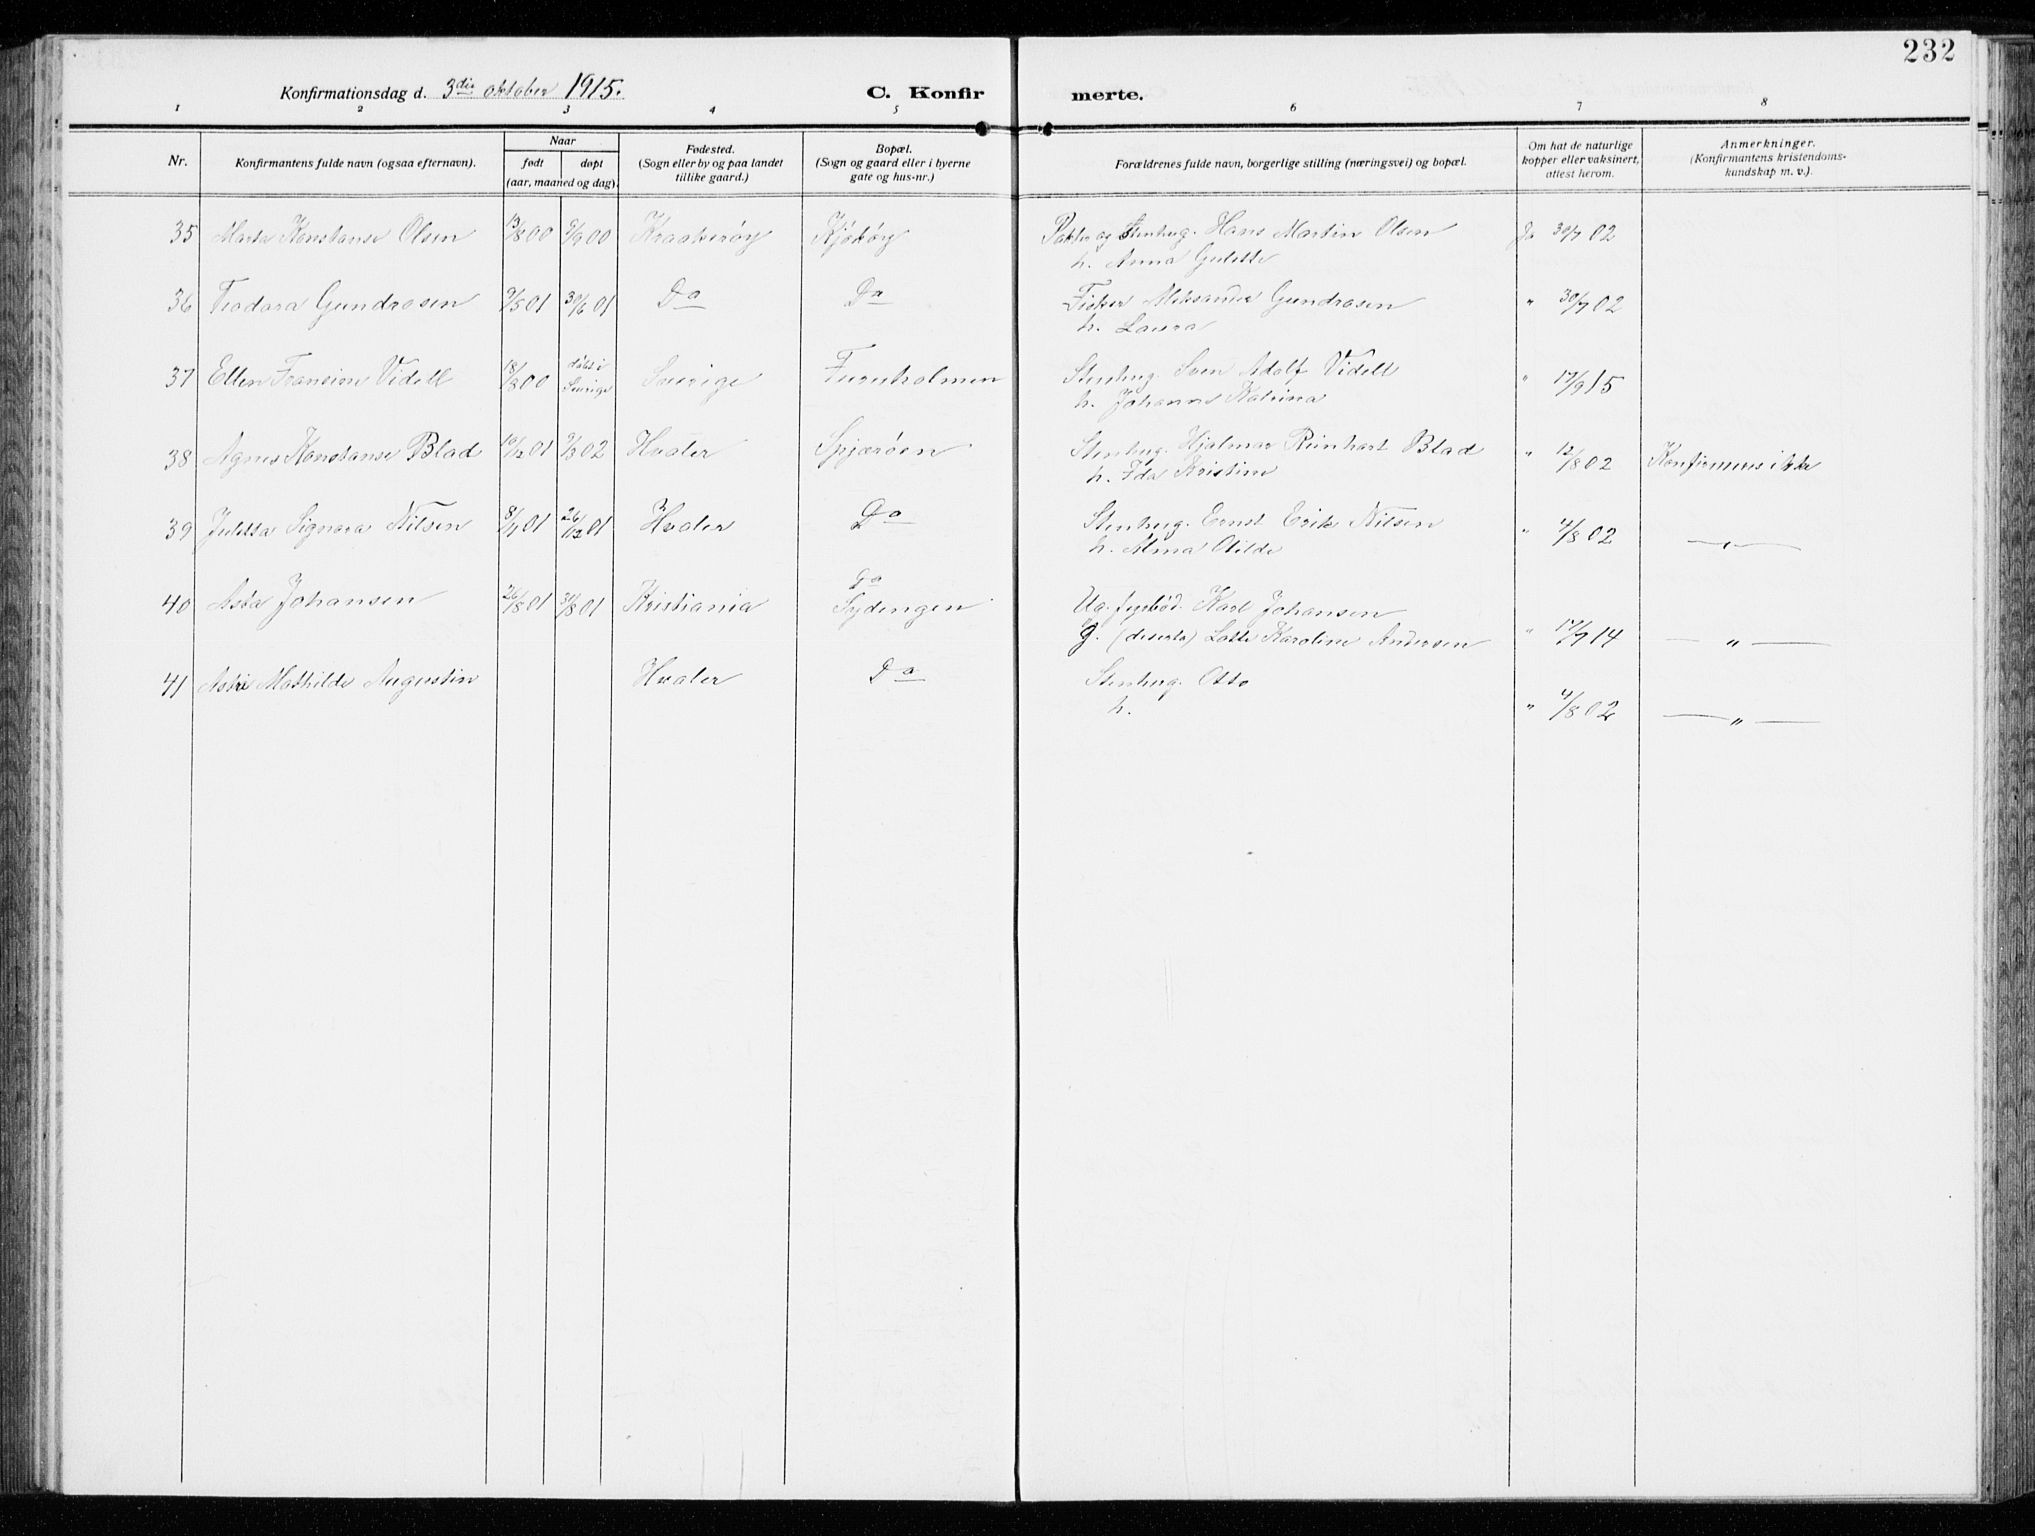 232
Konfirmationsdag d. 3die oktober 1915. C. Konfirmerte.
1 2 3 4 5 6 7 8
Nr. Konfirmantens fulde navn (ogsaa efternavn). Naar født døpt (aar, maaned og dag). Fødested. (Sogn eller by og paa landet tillike gaard.) Bopæl. (Sogn og gaard eller i byerne gate og hus-nr.) Forældrenes fulde navn, borgerlige stilling (næringsvei) og bopæl. Om hat de naturlige kopper eller vaksinert, attest herom. Anmerkninger. (Konfirmantens kristendomskundskap m. v.).
35 Marta Konstanse Olsen 13/8 00 9/9 00 Kraakerøy Kjøkøy Pakter og Stenhug. Hans Martin Olsen Ja 30/7 02
h. Anna Gulette
36 Teodora Gundrosen 9/5 01 30/6 01 Do Do Fisker Aleksander Gundrosen " 30/7 02
h. Laura
37 Ellen Fransine Videll 18/3 00 døbt i Sverige Sverige Furuholmen Stenhug. Sven Adolf Videll " 17/9 15
h. Johanne Katrina
38 Agnes Konstanse Blad 10/12 01 9/3 02 Hvaler Spjærøen Stenhug. Hjalmar Reinhart Blad " 12/8 02 Konfirmeres ikke
h. Ida Kristine
39 Juletta Signora Nilsen 8/7 01 26/12 01 Hvaler Do Stenhug. Ernst Erik Nilsen " 4/8 02 — " —
h. Alma Otilde
40 Asta Johansen 26/8 01 31/8 01 Kristiania Do Sydengen Ug. fyrbød. Karl Johansen
g. (deserta) Lotte Karoline Andersen " 17/7 14 — " —
41 Mathilde Augustin Hvaler Do Stenhug. Otto
h. " 4/8 02 — " —